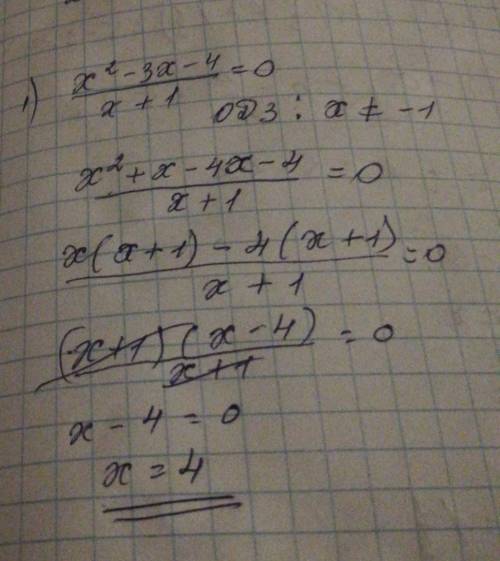 1) (x² - 3x - 4)/(x + 1) = 0
ОДЗ : x ≠ -1
(x² + x - 4x - 4)/(x + 1) = 0
(x(x + 1) - 4(x + 1))/(x + 1) = 0
((x + 1)(x - 4))/(x + 1) = 0
x - 4 = 0
x = 4